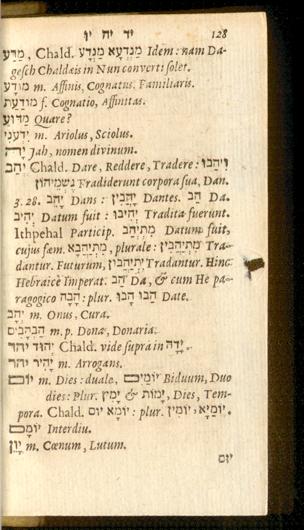 יד יח יו 128
מַדָּע, Chald. מַנְדְּעָא מַנְדַּע Idem: nam Da-
gesch Chaldæis in Nun converti solet.
מוֹדָע m. Affinis, Cognatus, Familiaris.
מוֹדַעַת f. Cognatio, Affinitas.
מַדּוּעַ Quare?
יִדְּעֹנִי m. Ariolus, Sciolus.
Jah, nomen divinum.
יְהַב Chald. Dare, Reddere, Tradere: וִיהַבוּ
גֶשְׁמֵיהוֹן Tradiderunt corpora sua, Dan.
3. 28. יָהֵב Dans: יָהֲבִין Dantes. הַב Da.
יְהִיב Datum fuit: יְהִיבוּ Tradita fuerunt.
Ithpehal Particip. מִתְיְהֵב Datum fuit,
cujus fœm. מִתְיַהֲבָא, plurale: מִתְיַהֲבִין Tra-
dantur. Futurum, יִתְיַהֲבוּן Tradantur. Hinc
Hebraicè Imperat. הַב Da, & cum He pa-
ragogico הָבָה: plur. הָבוּ הָבוּ Date.
יְהָב m. Onus, Cura.
הַבְהָבִים m.p. Dona, Donaria.
יהוד יהד Chald. vide supra in יָדָה.
יָהִיר יהר m. Arrogans.
יוֹם m. Dies: duale, יוֹמַיִם Biduum, Duo
dies: Plur. יָמִין & יָמוֹת, Dies, Tem-
pora. Chald. יוֹמָא יוֹם: plur. יוֹמַיָּא, יוֹמִין.
יוֹמָם Interdiu.
יָוֵן m. Cœnum, Lutum.